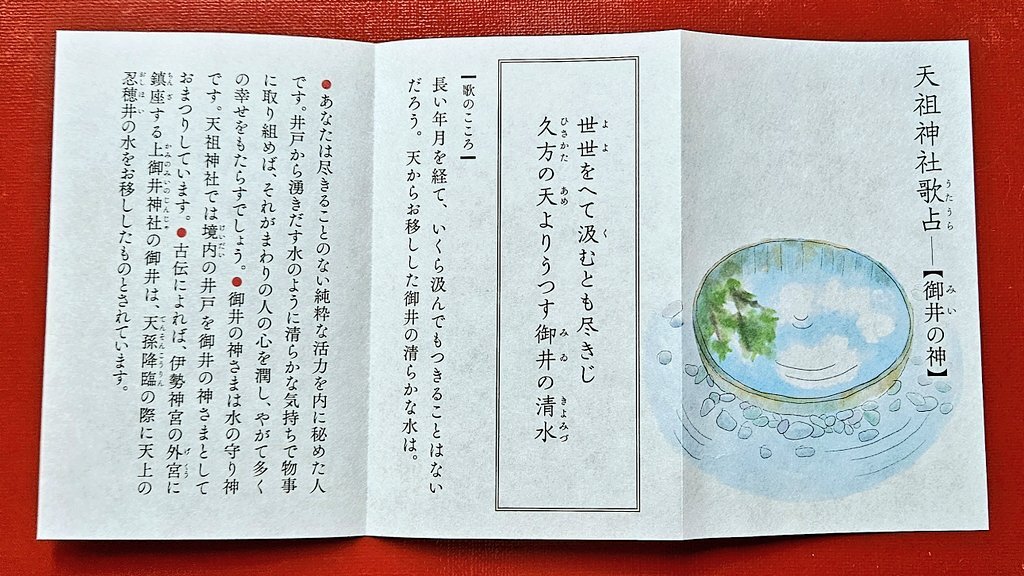 天祖神社歌占―【御井の神】
世世をへて汲むとも尽きじ
久方の天よりうつす御井の清水
歌のこころ
長い年月を経て、いくら汲んでもつきることはない
だろう。天からお移しした御井の清らかな水は。
●あなたは尽きることのない純粋な活力を内に秘めた人
です。井戸から湧きだす水のように清らかな気持ちで物事
に取り組めば、それがまわりの人の心を潤し、やがて多く
の幸せをもたらすでしょう。●御井の神さまは水の守り神
です。天祖神社では境内の井戸を御井の神さまとして
おまつりしています。●古伝によれば、伊勢神宮の外宮に
鎮座する上御井神社の御井は、天孫降臨の際に天上の
忍穂井の水をお移ししたものとされています。